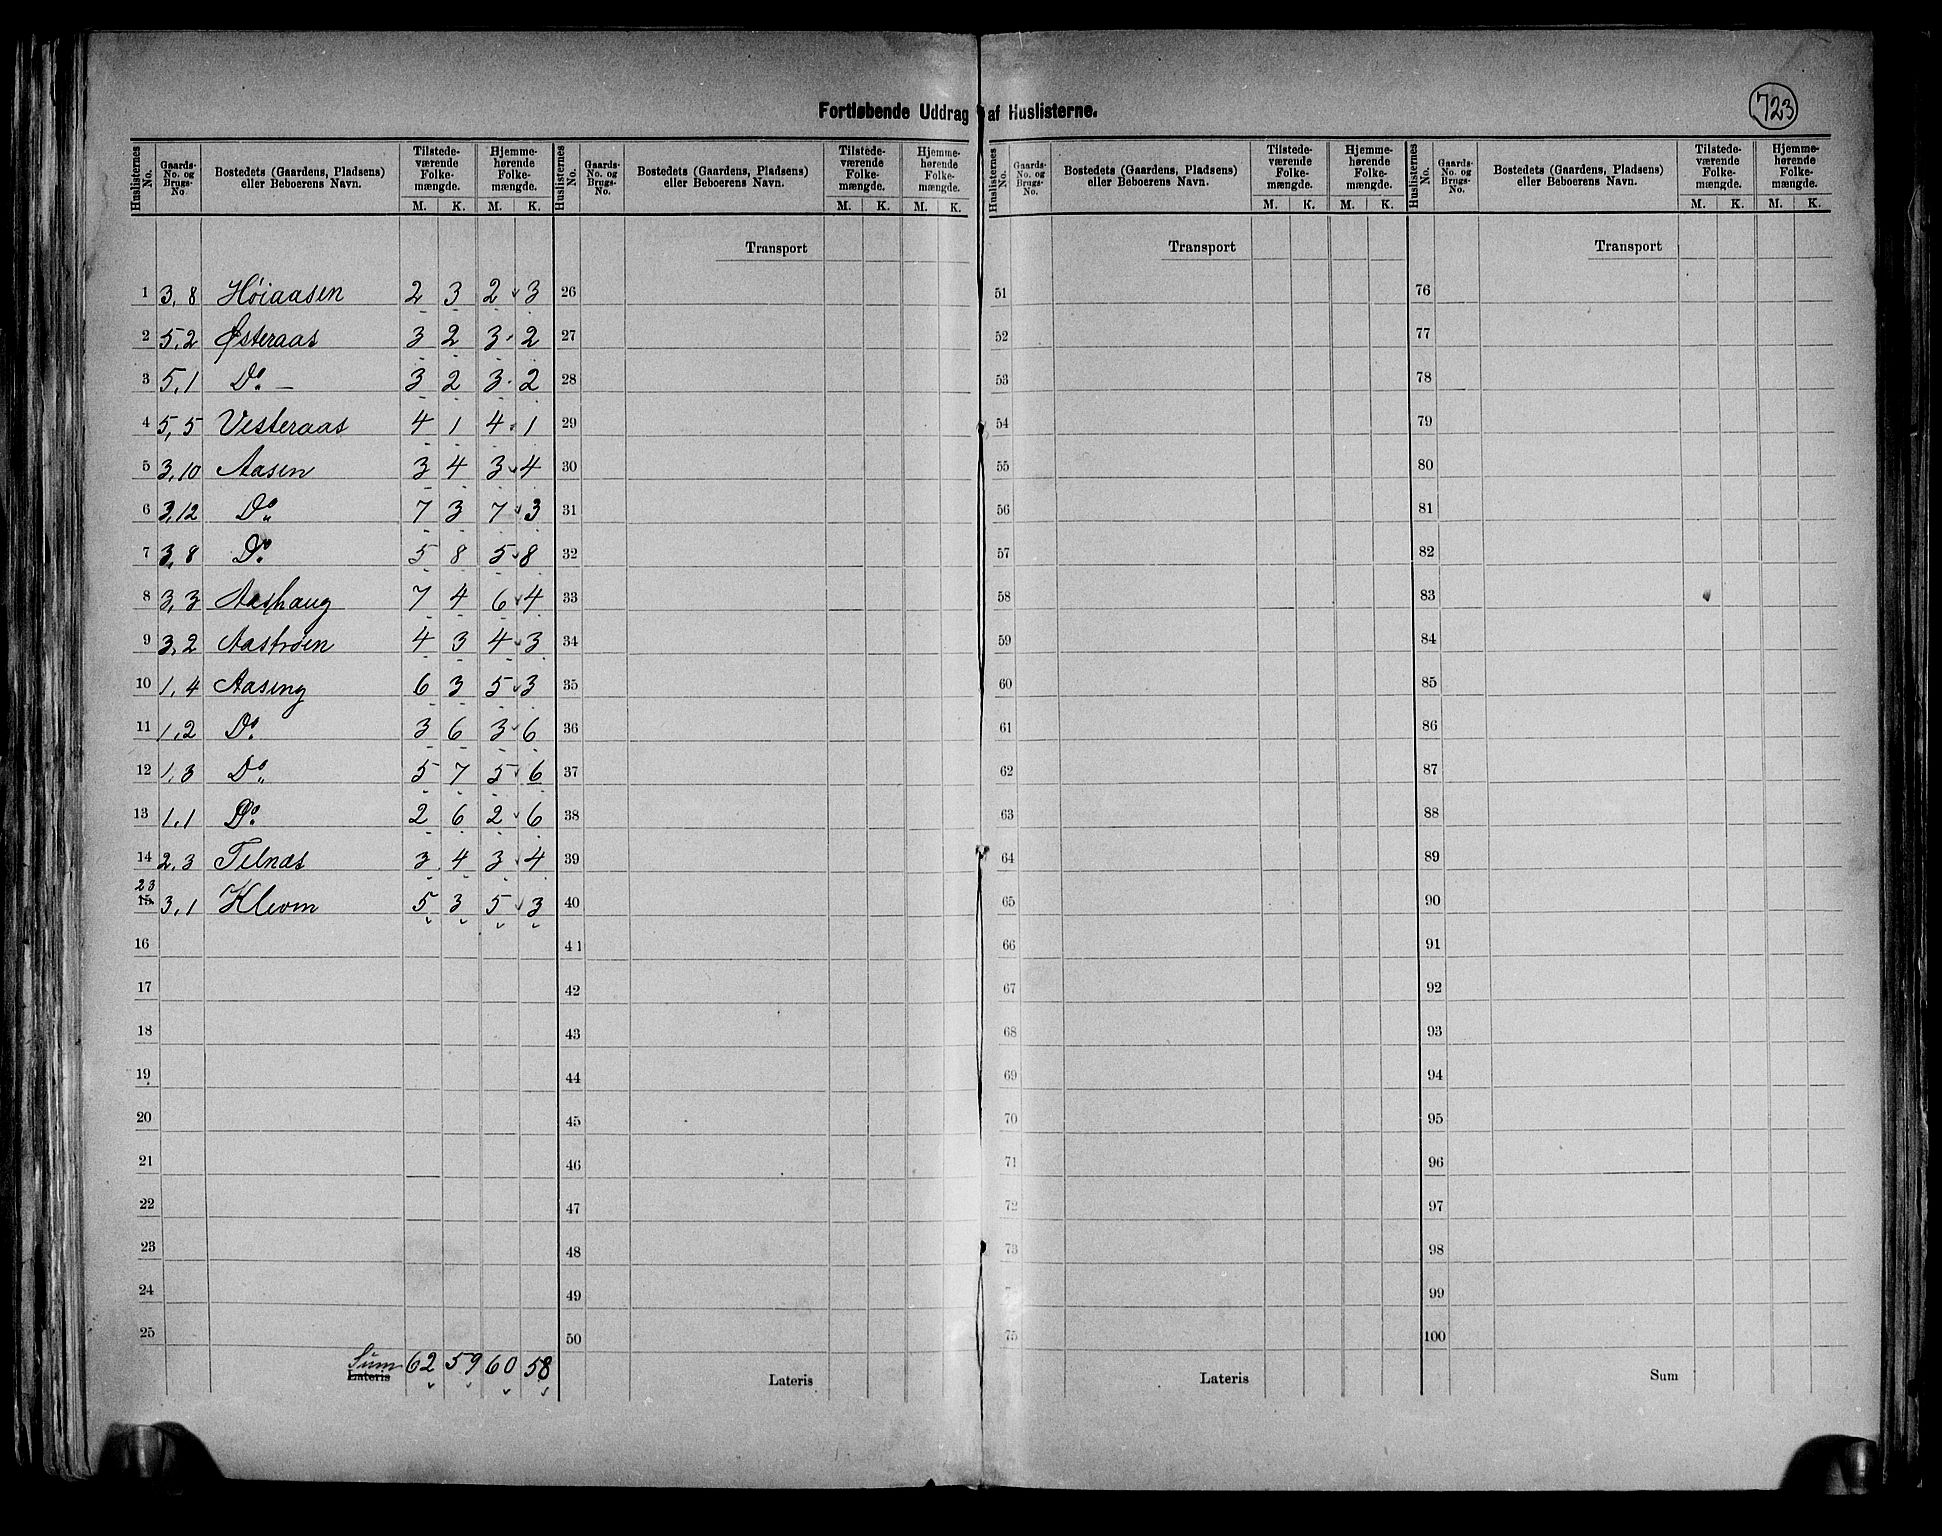 723
Fortløbende Uddrag af Huslisterne.
Huslisternes No. | Gaards-No. og Brugs-No. | Bostedets (Gaardens, Pladsens) eller Beboerens Navn. | Tilstedeværende Folkemængde. M. K. | Hjemmehørende Folkemængde. M. K.
Huslisternes No. | Gaards-No. og Brugs-No. | Bostedets (Gaardens, Pladsens) eller Beboerens Navn. | Tilstedeværende Folkemængde. M. K. | Hjemmehørende Folkemængde. M. K.
Huslisternes No. | Gaards-No. og Brugs-No. | Bostedets (Gaardens, Pladsens) eller Beboerens Navn. | Tilstedeværende Folkemængde. M. K. | Hjemmehørende Folkemængde. M. K.
Huslisternes No. | Gaards-No. og Brugs-No. | Bostedets (Gaardens, Pladsens) eller Beboerens Navn. | Tilstedeværende Folkemængde. M. K. | Hjemmehørende Folkemængde. M. K.
Transport Transport Transport
1 3,8 Høiaasen 2 3 2 3 26 51 76
2 5,2 Østeraas 3 2 3 2 27 52 77
3 5,1 Do. — 3 2 3 2 28 53 78
4 5,5 Vesteraas 4 1 4 1 29 54 79
5 3,10 Aasen 3 4 3 4 30 55 80
6 3,12 Do 7 3 7 3 31 56 81
7 3,8 Do. 5 8 5 8 32 57 82
8 3,3 Aashaug 7 4 6 4 33 58 83
9 3,2 Aastrøen 4 3 4 3 34 59 84
10 1,4 Aaseng 6 3 5 3 35 60 85
11 1,2 Do. 3 6 3 6 36 61 86
12 1,3 Do 5 7 5 6 37 62 87
13 1,1 Do. 2 6 2 6 38 63 88
14 2,3 Telnæs 3 4 3 4 39 64 89
23
15 3,1 Kleven 5 3 5 3 40 65 90
16 41 66 91
17 42 67 92
18 43 68 93
19 44 69 94
20 45 70 95
21 46 71 96
22 47 72 97
23 48 73 98
24 49 99
25 50 75 100
Sum 62 59 60 58
Lateris Lateris Lateris Sum